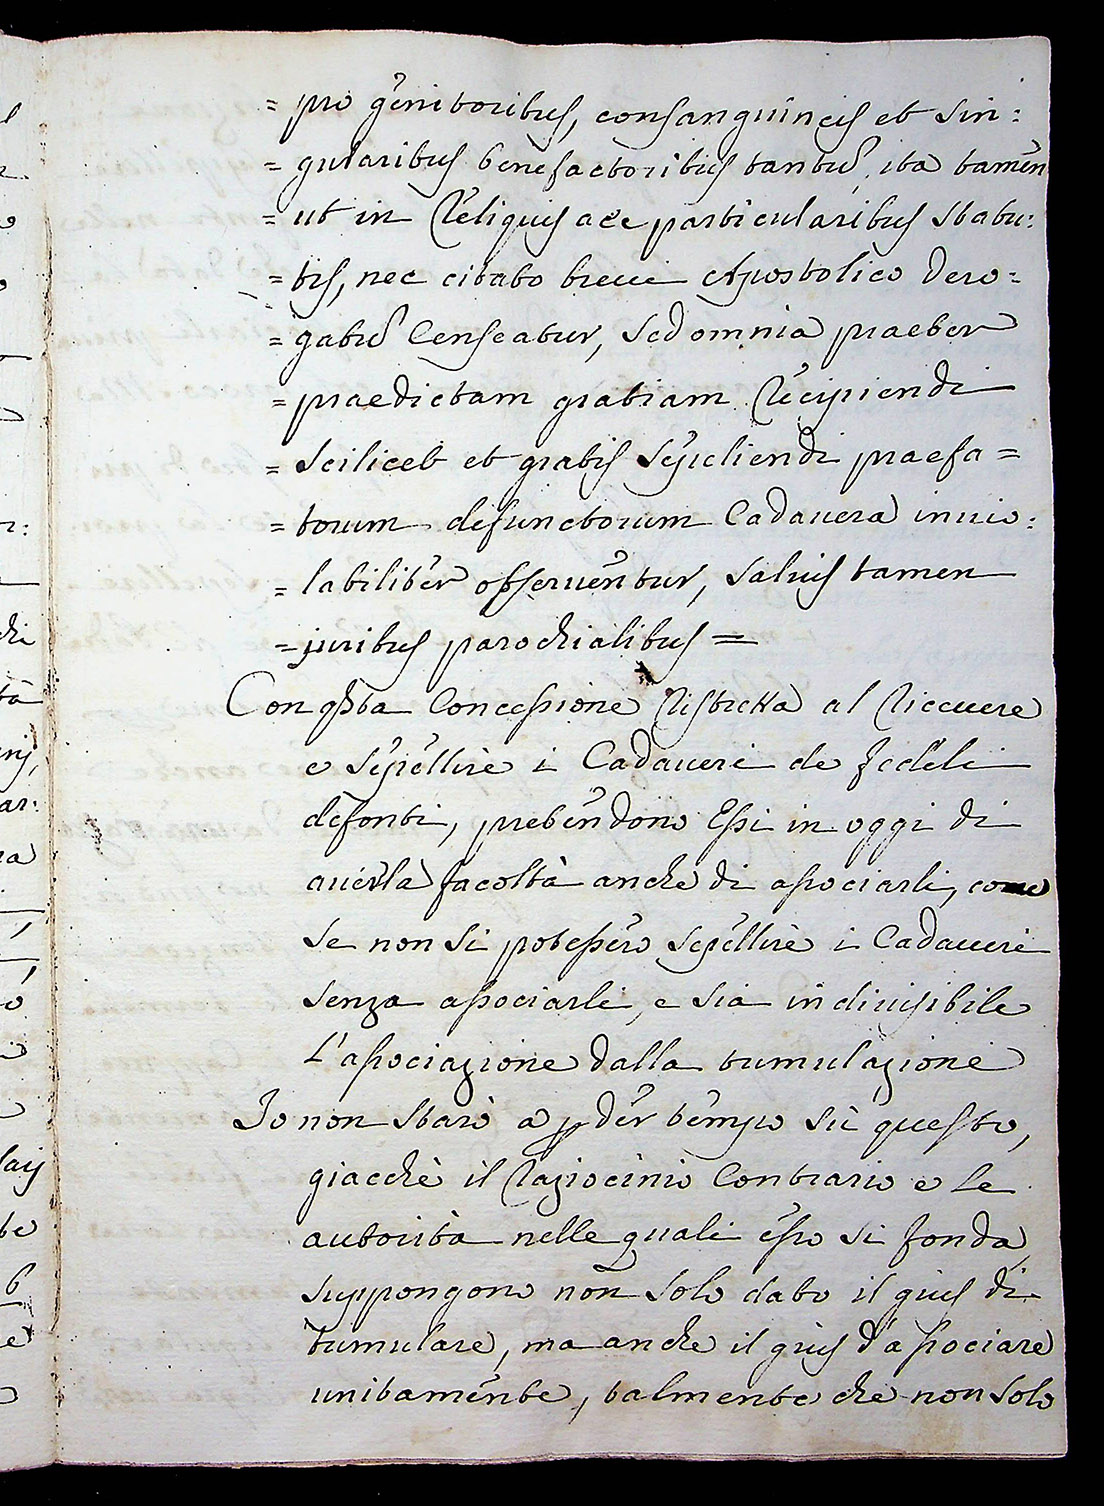 = pro genitoribus, consanguineis et sin:
= gularibus benefactoribus tantū, ita tamen
= ut in Reliquis ac è particularibus statu:
= tis, nec citato brevi Apostolico dero:
= gatū Censeatur, sed omnia praeter
= praedictam gratiam Recipiendi
= scilicet et gratis sepeliendi praefa =
= torum defunctorum Cadavera invio:
= labiliter observentur, salvis tamen
= juribus parochialibus =
Con qsta Concessione Ristretta al Ricevere
e sepellire i Cadaveri de fedeli
defonti, pretendono Essi in oggi di
averla facoltà anche di associarli, come
se non si potessero sepellire i Cadaveri
senza associarli, e sia indivisibile
L'associazione dalla tumulazione
Io non starò a pder tempo sù questo,
giacchè il Raziocinio Contrario e le
autorità nelle quali esso si fonda
suppongono non solo dato il gius di
tumulare, ma anche il gius d'associare
unitamente, talmente che non solo